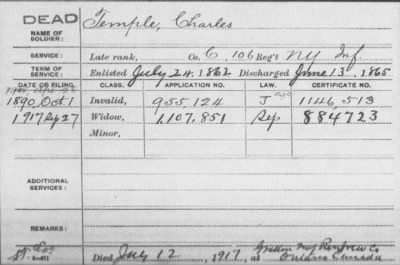 DEAD
NAME OF SOLDIER:
Temple, Charles
SERVICE:
Late rank, Co. C, 106 Reg't NY Inf.
TERM OF SERVICE
Enlisted July 24, 1862 Discharged June 13, 1865
DATE OF FILING. CLASS. APPLICATION NO. LAW. CERTIFICATE NO.
1890, Oct. 1 Invalid, 955,124 J 1146,513
1917 27 Widow, 1,107,851 884723
Minor,
ADDITIONAL SERVICES:
REMARKS:
Died 12, 1917, at Renfrew Co
Ontario Canada